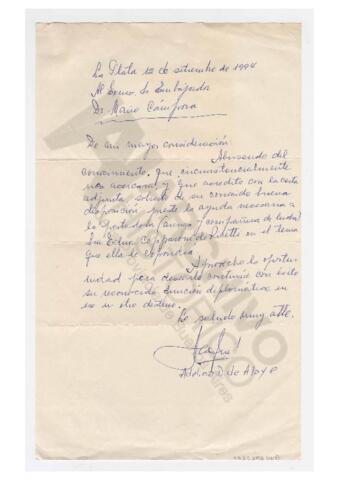 La Plata 12 de setiembre de 1994
Al Excmo. Sr Embajador
Dr. Mario Cámpora
De mi mayor consideración:
Abusando del
conocimiento, que circunstancialmente
nos acercara y que acredito con la carta
adjunta, solicito de su conocida buena
disposición, preste la ayuda necesaria a
la portadora (amiga y compañera de
Sra Edna Copparoni de Ricetti en el tema
que ella le expondrá.
Aprovecho la oportu-
nidad para desearle continúe con éxito
su reconocida función diplomática en
ese u otro destino.
Le saluda muy atte.
de Aloye